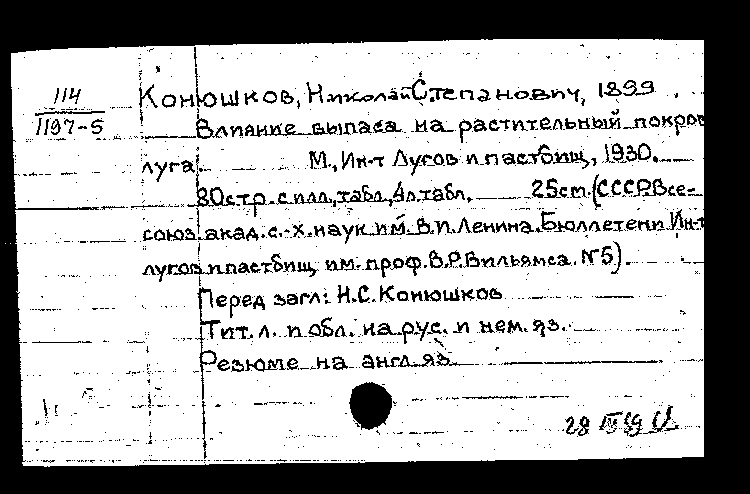 114
1197-5
Конюшков, Николай Степанович, 1899 .
Влияние выпаса на растительный покров
луга. М., Ин-т Лугов и пастбищ, 1930.
80стр. с илл., табл., 4л. табл. 25cm. (СССР. Все-
союз. акад. с.-х. наук им. В.И. Ленина. Бюллетени Ин-т
лугов и пастбищ им. проф. В.Р. Вильямса. №5).
Перед загл.: Н.С. Конюшков
Тит. л. и обл. на рус. и нем. яз.
Резюме на англ. яз.
28